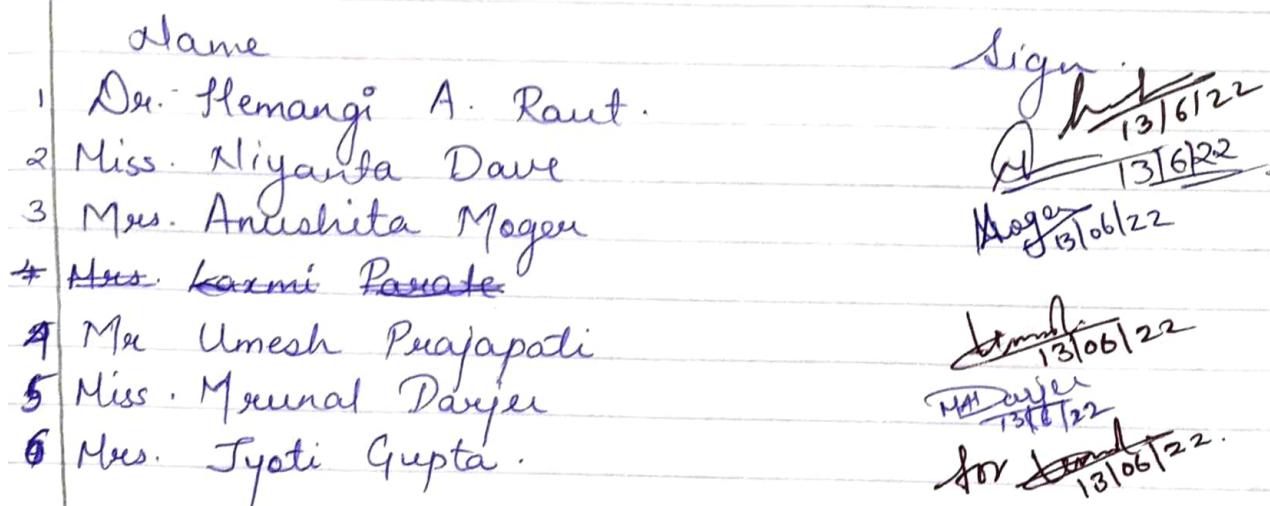 Name Sign.
1 Dr. Hemangi A. Raut. 13/6/22
2 Miss. Niyanta Dave 13/6/22
3 Mrs. Anushita Moger Moger 13/06/22
4 Mrs. Laxmi Parate
4 Mr Umesh Prajapati 13/06/22
5 Miss. Mrunal Darjer Darjer 13/6/22
6 Mrs. Jyoti Gupta. for 13/06/22.